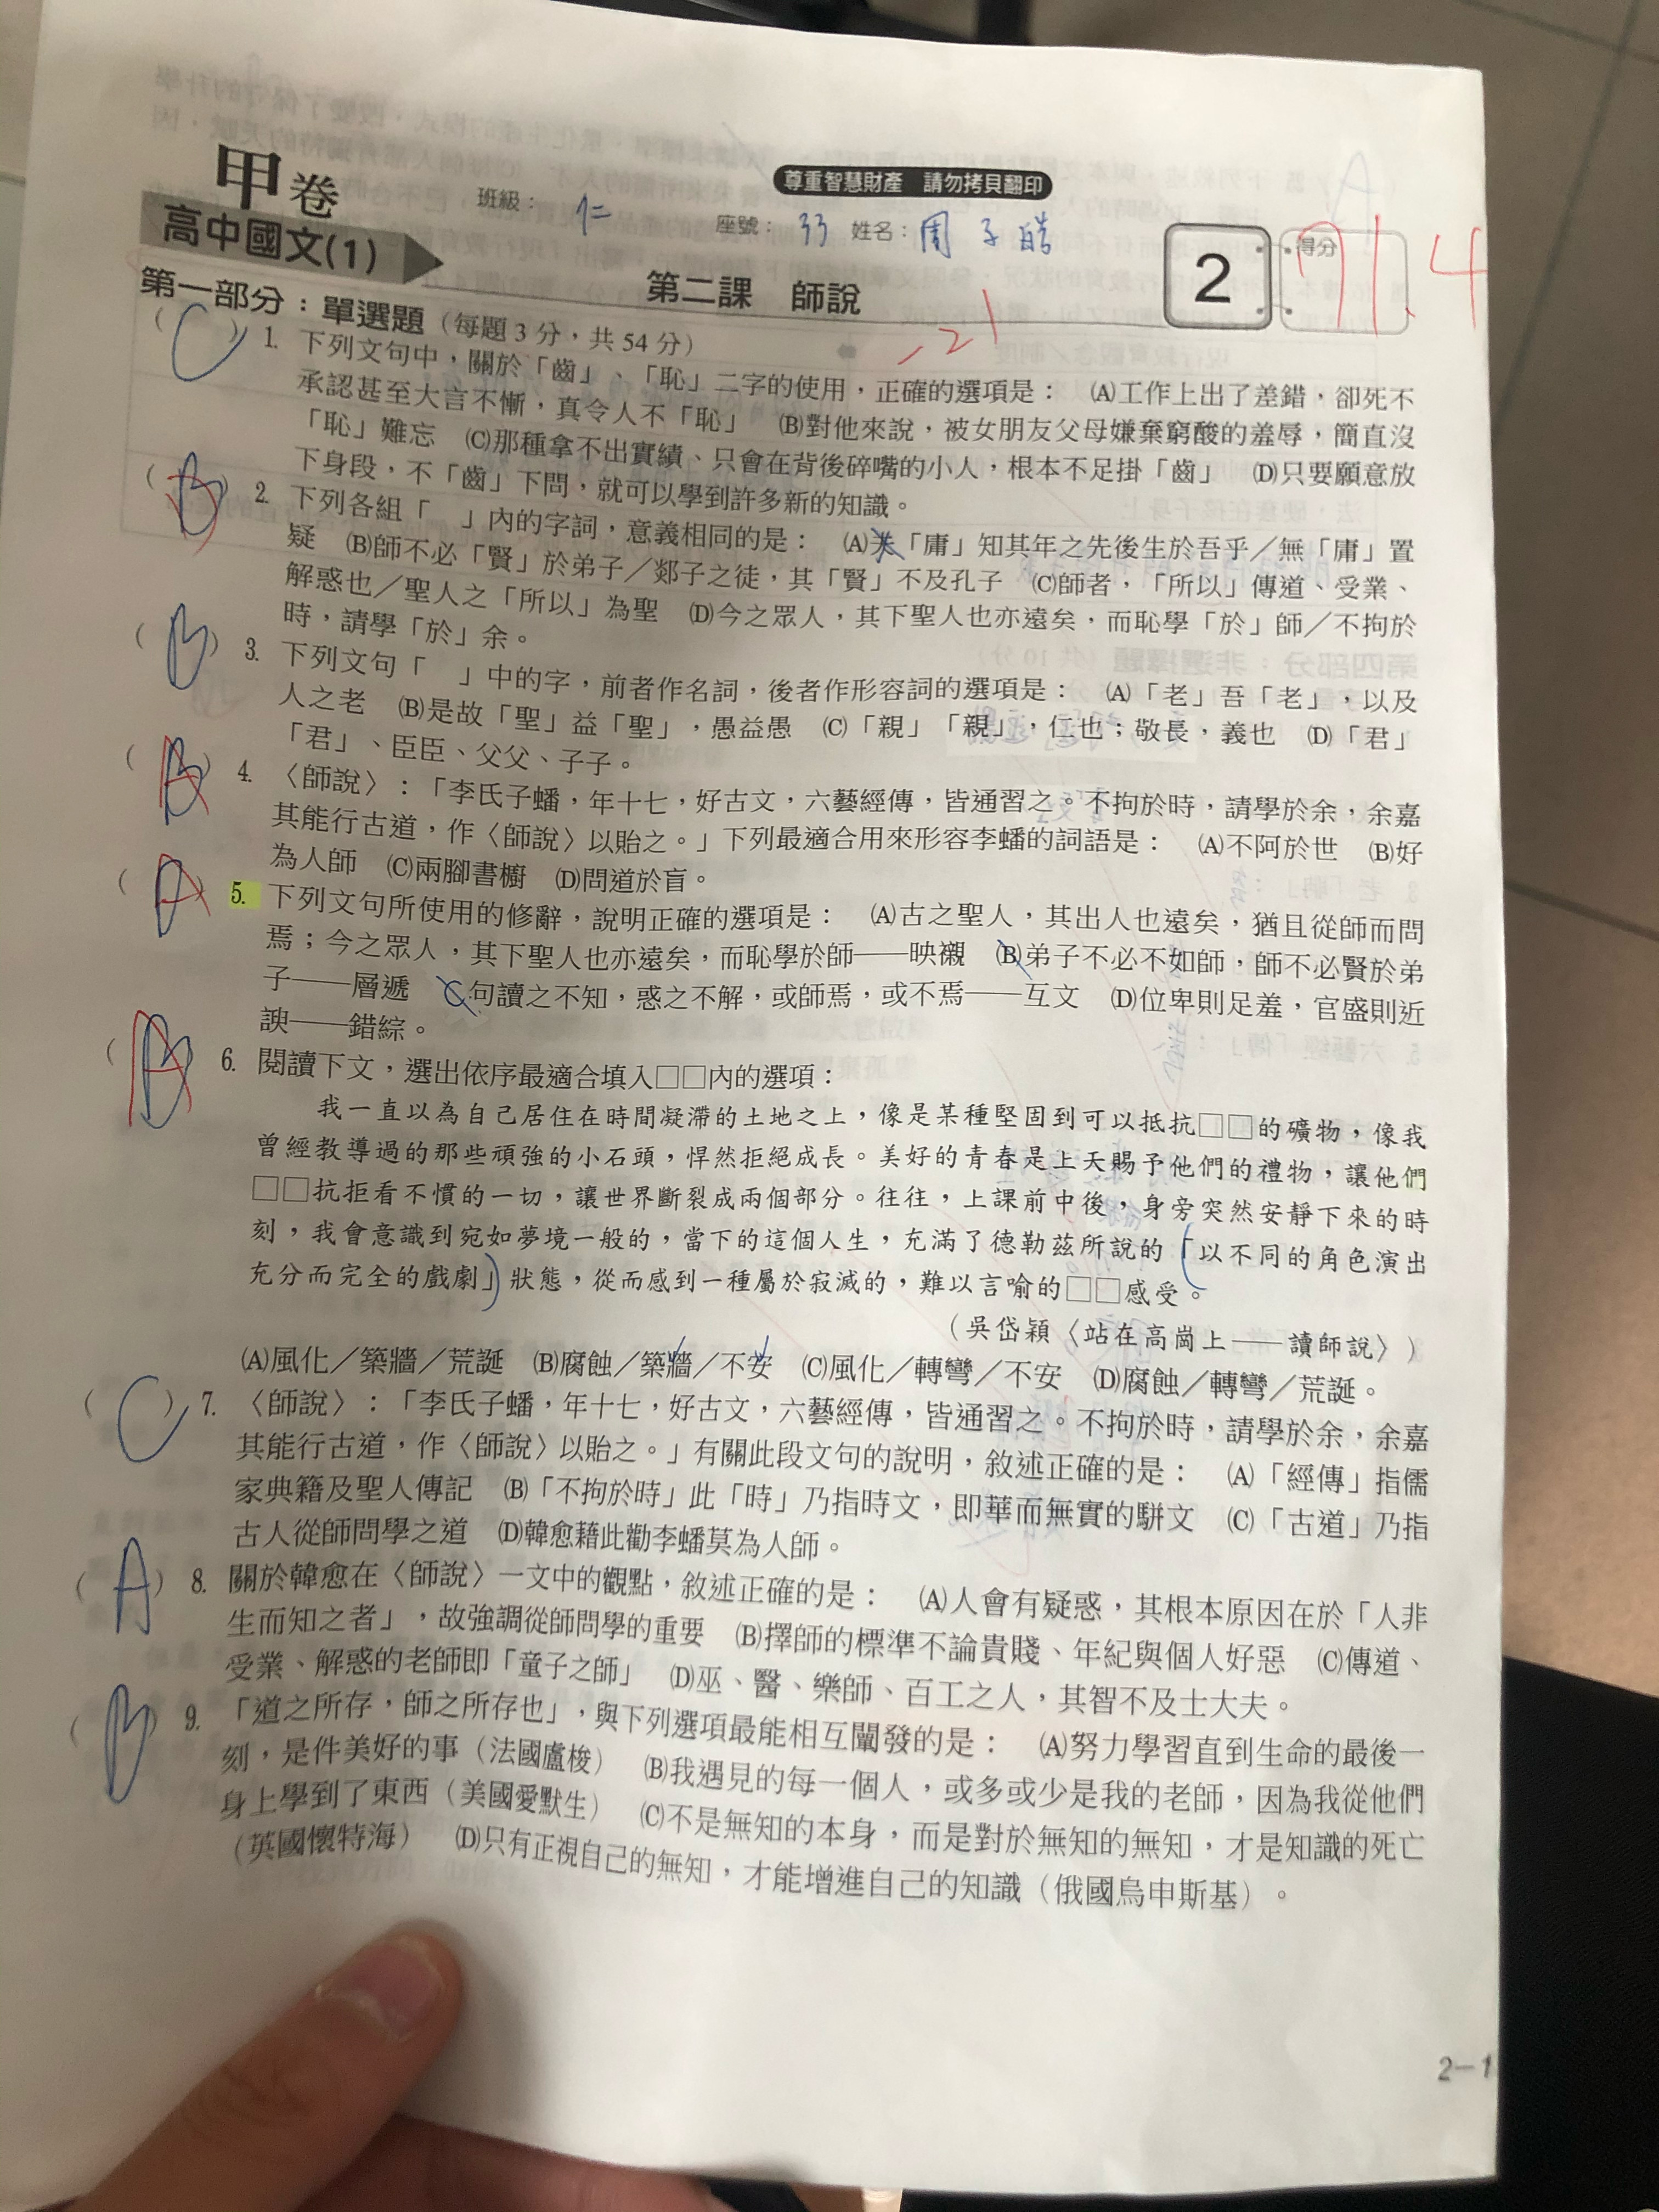 甲卷
尊重智慧財產 請勿拷貝翻印
高中國文(1)
班級： 仁 座號： 33 姓名： 周子皓
第二課 師說
2
得分 71.4
第一部分：單選題（每題 3 分，共 54 分）
-21
( C ) 1. 下列文句中，關於「齒」、「恥」二字的使用，正確的選項是： (A)工作上出了差錯，卻死不
承認甚至大言不慚，真令人不「恥」 (B)對他來說，被女朋友父母嫌棄窮酸的羞辱，簡直沒
「恥」難忘 (C)那種拿不出實績、只會在背後碎嘴的小人，根本不足掛「齒」 (D)只要願意放
下身段，不「齒」下問，就可以學到許多新的知識。
( B ) 2. 下列各組「 」內的字詞，意義相同的是： (A)夫「庸」知其年之先後生於吾乎／無「庸」置
疑 (B)師不必「賢」於弟子／郯子之徒，其「賢」不及孔子 (C)師者，「所以」傳道、受業、
解惑也／聖人之「所以」為聖 (D)今之眾人，其下聖人也亦遠矣，而恥學「於」師／不拘於
時，請學「於」余。
( B ) 3. 下列文句「 」中的字，前者作名詞，後者作形容詞的選項是： (A)「老」吾「老」，以及
人之老 (B)是故「聖」益「聖」，愚益愚 (C)「親」「親」，仁也；敬長，義也 (D)「君」
「君」、臣臣、父父、子子。
( A ) 4. 〈師說〉：「李氏子蟠，年十七，好古文，六藝經傳，皆通習之。不拘於時，請學於余，余嘉
其能行古道，作〈師說〉以貽之。」下列最適合用來形容李蟠的詞語是： (A)不阿於世 (B)好
為人師 (C)兩腳書櫥 (D)問道於盲。
( A ) 5. 下列文句所使用的修辭，說明正確的選項是： (A)古之聖人，其出人也遠矣，猶且從師而問
焉；今之眾人，其下聖人也亦遠矣，而恥學於師——映襯 (B)弟子不必不如師，師不必賢於弟
子——層遞 (C)句讀之不知，惑之不解，或師焉，或不焉——互文 (D)位卑則足羞，官盛則近
諛——錯綜。
( A ) 6. 閱讀下文，選出依序最適合填入□□內的選項：
我一直以為自己居住在時間凝滯的土地之上，像是某種堅固到可以抵抗□□的礦物，像我
曾經教導過的那些頑強的小石頭，悍然拒絕成長。美好的青春是上天賜予他們的禮物，讓他們
□□抗拒看不慣的一切，讓世界斷裂成兩個部分。往往，上課前中後，身旁突然安靜下來的時
刻，我會意識到宛如夢境一般的，當下的這個人生，充滿了德勒茲所說的「以不同的角色演出
充分而完全的戲劇」狀態，從而感到一種屬於寂滅的，難以言喻的□□感受。
（吳岱穎〈站在高崗上——讀師說〉）
(A)風化／築牆／荒誕 (B)腐蝕／築牆／不安 (C)風化／轉彎／不安 (D)腐蝕／轉彎／荒誕。
( C ) 7. 〈師說〉：「李氏子蟠，年十七，好古文，六藝經傳，皆通習之。不拘於時，請學於余，余嘉
其能行古道，作〈師說〉以貽之。」有關此段文句的說明，敘述正確的是： (A)「經傳」指儒
家典籍及聖人傳記 (B)「不拘於時」此「時」乃指時文，即華而無實的駢文 (C)「古道」乃指
古人從師問學之道 (D)韓愈藉此勸李蟠莫為人師。
( A ) 8. 關於韓愈在〈師說〉一文中的觀點，敘述正確的是： (A)人會有疑惑，其根本原因在於「人非
生而知之者」，故強調從師問學的重要 (B)擇師的標準不論貴賤、年紀與個人好惡 (C)傳道、
受業、解惑的老師即「童子之師」 (D)巫、醫、樂師、百工之人，其智不及士大夫。
( B ) 9. 「道之所存，師之所存也」，與下列選項最能相互闡發的是： (A)努力學習直到生命的最後一
刻，是件美好的事（法國盧梭） (B)我遇見的每一個人，或多或少是我的老師，因為我從他們
身上學到了東西（美國愛默生） (C)不是無知的本身，而是對於無知的無知，才是知識的死亡
（英國懷特海） (D)只有正視自己的無知，才能增進自己的知識（俄國烏申斯基）。
2－1